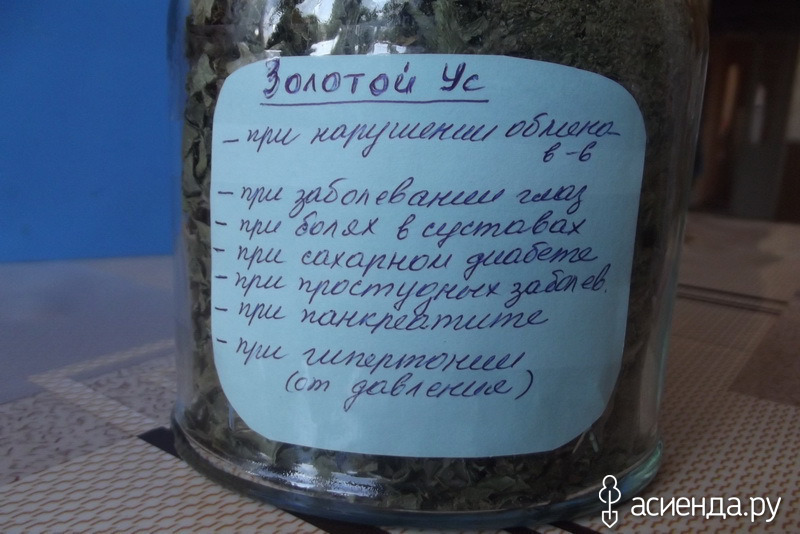 Золотой Ус
- при нарушении обмена
в-в
- при заболевании глаз
- при болях в суставах
- при сахарном диабете
- при простудных заболев.
- при панкреатите
- при гипертонии
(от давления)
асиенда.ру